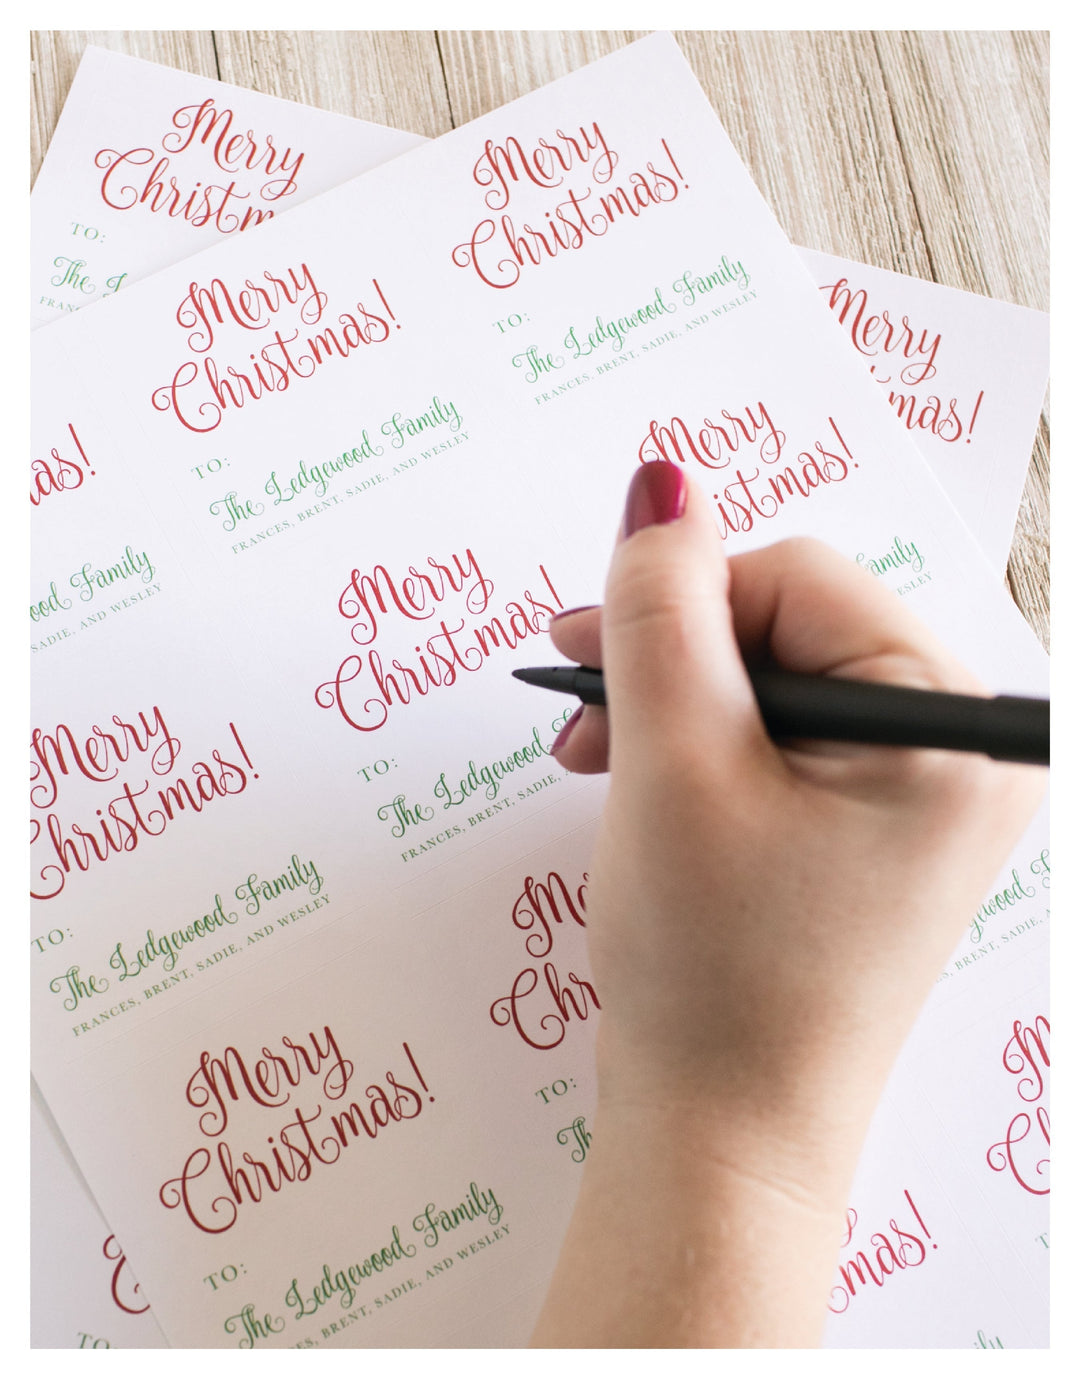 Merry
Christm
TO:
The
FRAN
Merry
Christmas!
TO:
The Ledgewood Family
FRANCES, BRENT, SADIE, AND WESLEY
Merry
Christmas!
TO:
The Ledgewood Family
FRANCES, BRENT, SADIE, AND WESLEY
Merry
mas!
as!
ood Family
SADIE, AND WESLEY
Merry
istmas!
amily
ESLEY
Merry
Christmas!
TO:
The Ledgewood
FRANCES, BRENT, SADIE,
Merry
Christmas!
TO:
The Ledgewood Family
FRANCES, BRENT, SADIE, AND WESLEY
Me
Chr
TO:
Th
gewood
SADIE, AND
Merry
Christmas!
TO:
The Ledgewood Family
ES, BRENT, SADIE, AND WESLEY
M
C
mas!
TO:
mily